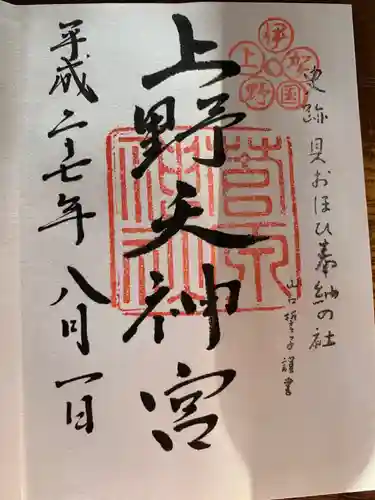 伊賀国上野
史跡 貝おほひ奉納の社
山口誓子謹書
上野天神宮
菅原神社
平成二十七年 八月一日